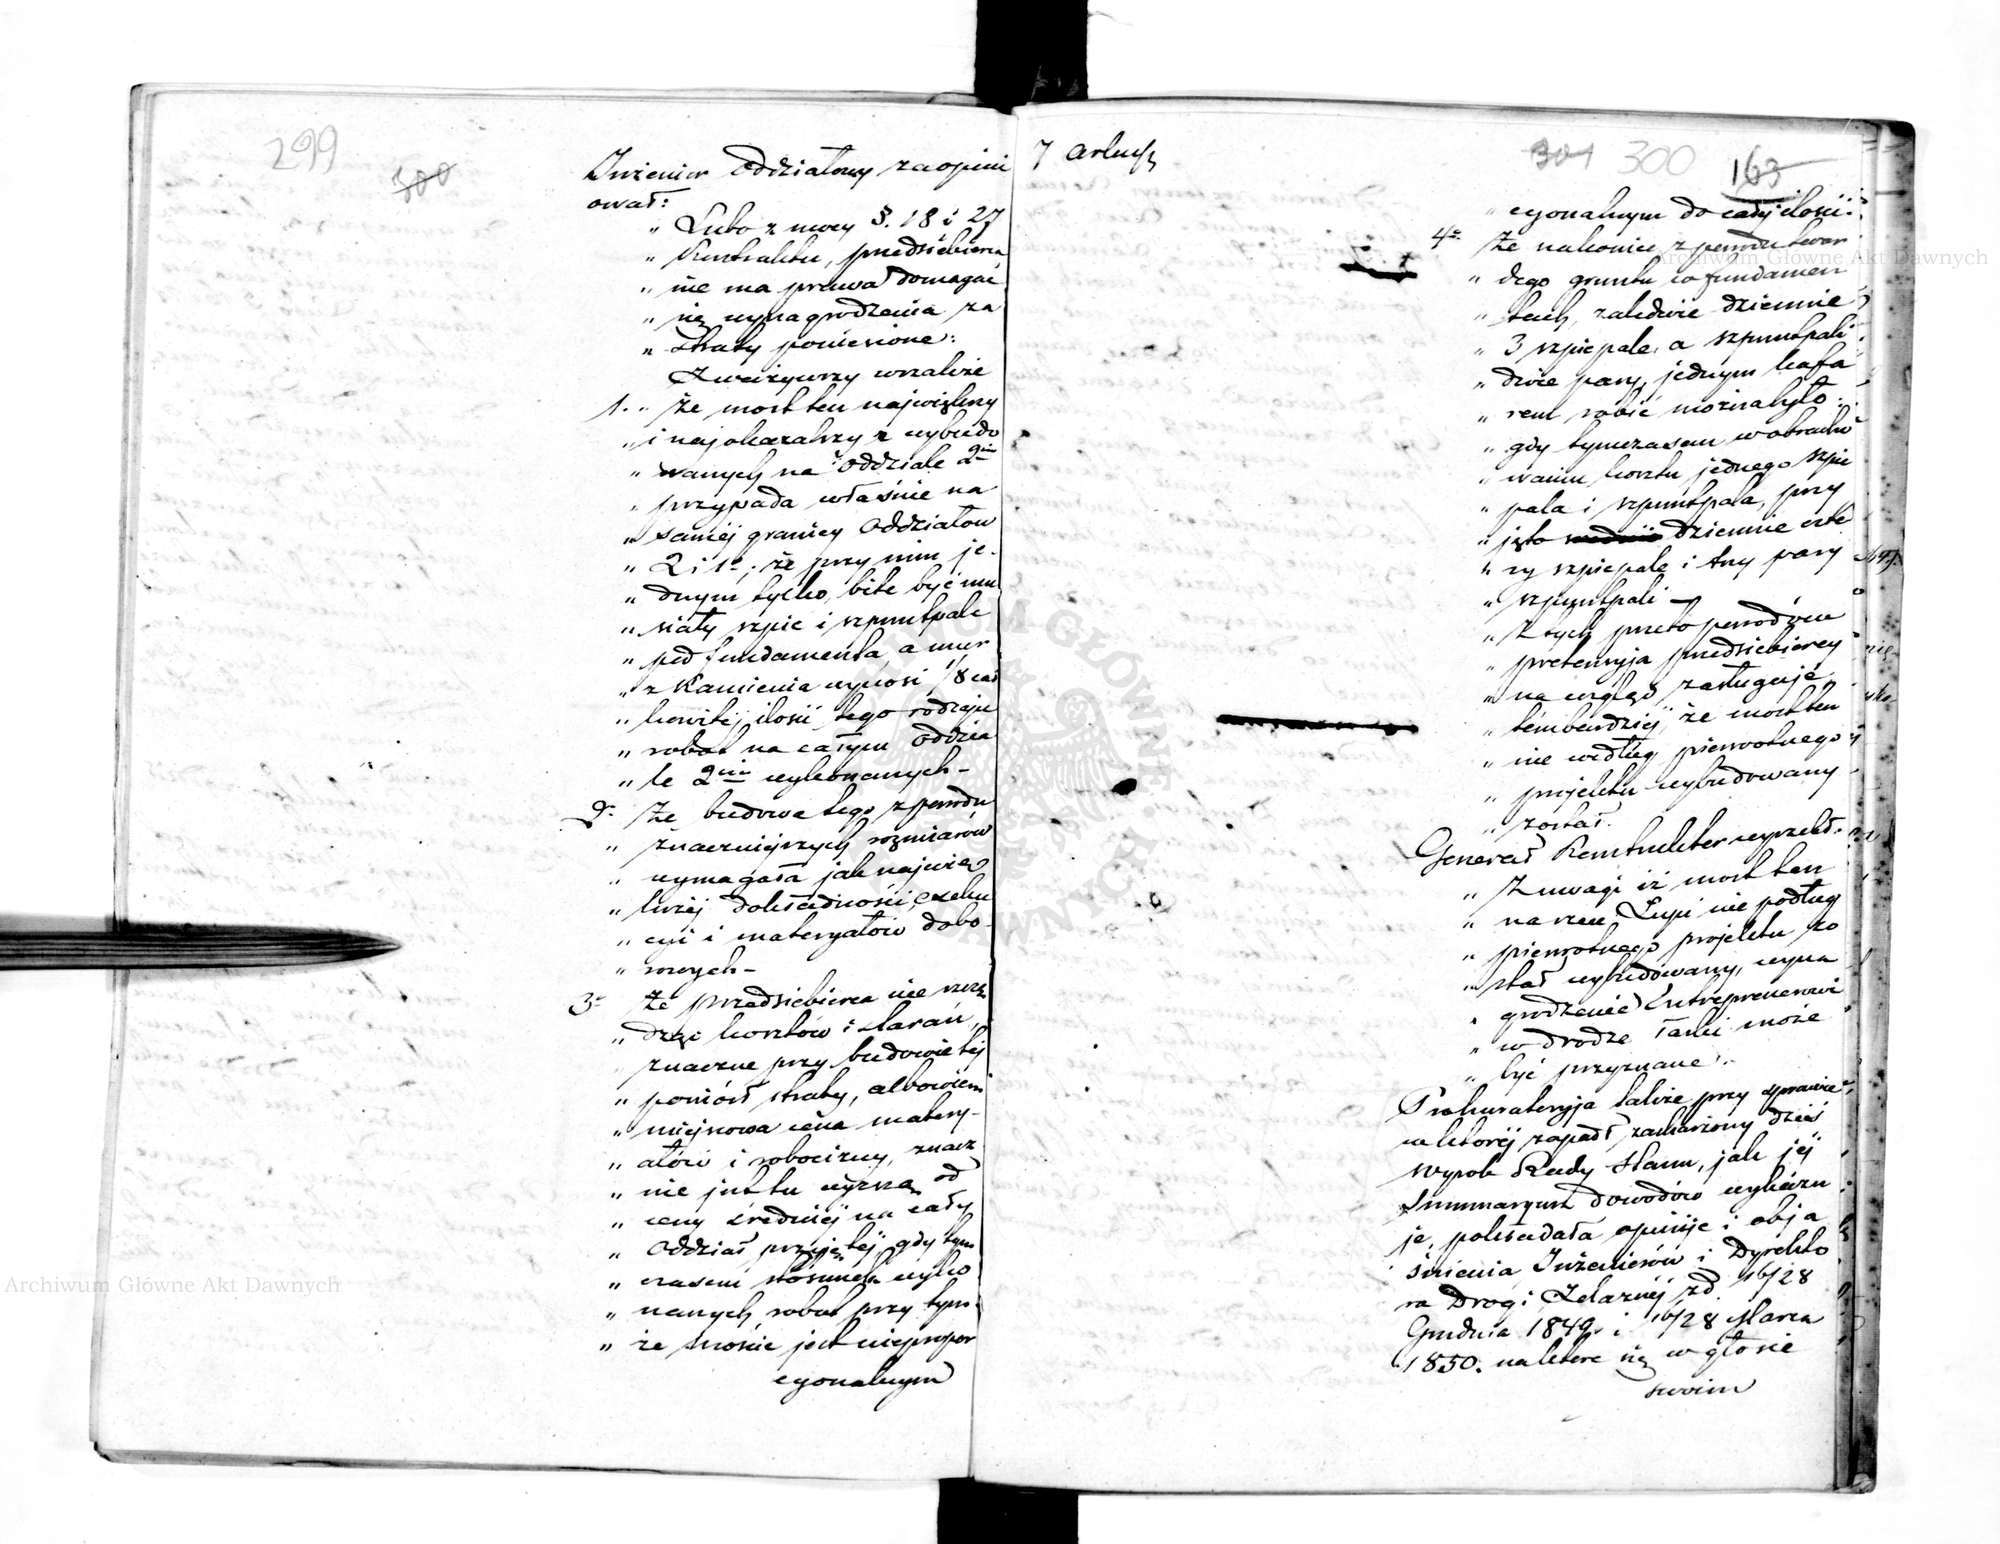 299
300
Inżenier Oddziałowy zaopini
ował:
„ Lubo z mocy §. 18 i 27
„ Kontraktu, przedsiębierca
„ nie ma prawa domagać
„ się wynagrodzenia za
„ straty poniesione:
Zważywszy wszakże
1. „ Że most ten największy
„ i najokazalszy z wybudo
„ wanych na Oddziale 2im
„ przypada właśnie na
„ samej granicy Oddziałów
„ 2 i 1o; że przy nim je-
„ dnym tylko, bite być mu
„ siały szpic i szpuntpale
„ pod fundamenta, a mur
„ z Kamienia wynosi 1/8 cał
„ kowitej ilości tego rodzaju
„ robot na całym Oddzia
„ le 2im wykonanych-
2o Że budowa tego z powodu
„ znaczniejszych rozmiarów
„ wymagała jak najwięk
„ kszej dokładności, exeku
„ cyi i materyałów dobo
„ rowych-
3o Że przedsiębierca nie szczę
„ dząc kosztów i starań,
„ znaczne przy budowie tej
„ poniósł straty, albowiem
„ miejscowa cena matery-
„ ałów i robocizny, znacz
„ nie jest tu wyższą od
„ ceny średniej na cały
„ Oddział przyjętej, gdy tym
„ czasem stosunek wyko
„ nanych robot przy tym-
„ że moście jest niepropor
cyonalnym
7 Arkusz
301 300 163
„ cyonalnym do całej ilości:
4o Że nakoniec z powodu twar
„ dego gruntu w fundamen
„ tach, zaledwie dziennie
„ 3 szpicpale, a szpuntpali
„ dwie pary, jednym kafa
„ rem robić można było:
„ gdy tymczasem w obracho
„ waniu kosztu jednego szpic
„ pala i szpuntpala, przy
„ jęto dziennie czte
„ ry szpicpale i trzy pary
„ szpuntpali
„ Z tych przeto powodów
„ pretensyja przedsiębiercy
„ na wzgląd zasługuje,
„ tembardziej, że most ten
„ nie według pierwotnego
„ projektu wybudowany
„ został.
Generał Kontroller wyrzekł.
„ Z uwagi iż most ten
„ na rzece Łupi nie podług
„ pierwotnego projektu zo
„ stał wybudowany, wyna
„ grodzenie Entreprenerowi
„ w drodze Łaski może
„ być przyznane.
Prokuratoryja także przy sprawie
w której zapadł zaskarżony dziś
wyrok Rady Stanu, jak jej
Summaryusz dowodów wykazu
je, pokładała opinije i obja
śnienia Inżenierów i Dyrekto
ra Drogi Żelaznej zd. 16/28
Grudnia 1849 i 16/28 Marca
1850. na które się w głosie
swoim
Archiwum Główne Akt Dawnych
Archiwum Główne Akt Dawnych